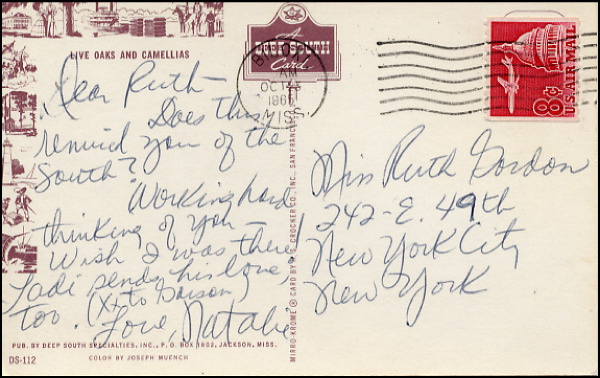 LIVE OAKS AND CAMELLIAS
A
DEEP SOUTH
Card
AM
OCT
MISS.
8¢
U.S. AIR MAIL
Dear Ruth –
Does this
remind you of the
South?
Working hard
thinking of you –
Wish I was there
Ladi sends his love,
too. (Xx to Garson)
Love, Natalie
Miss Ruth Gordon
242 – E. 49th
New York City
New York
MIRRO-KROME ® CARD BY H. S. CROCKER CO., INC., SAN FRANCISCO
PUB. BY DEEP SOUTH SPECIALTIES, INC., P. O. BOX 1902, JACKSON, MISS.
DS-112
COLOR BY JOSEPH MUENCH